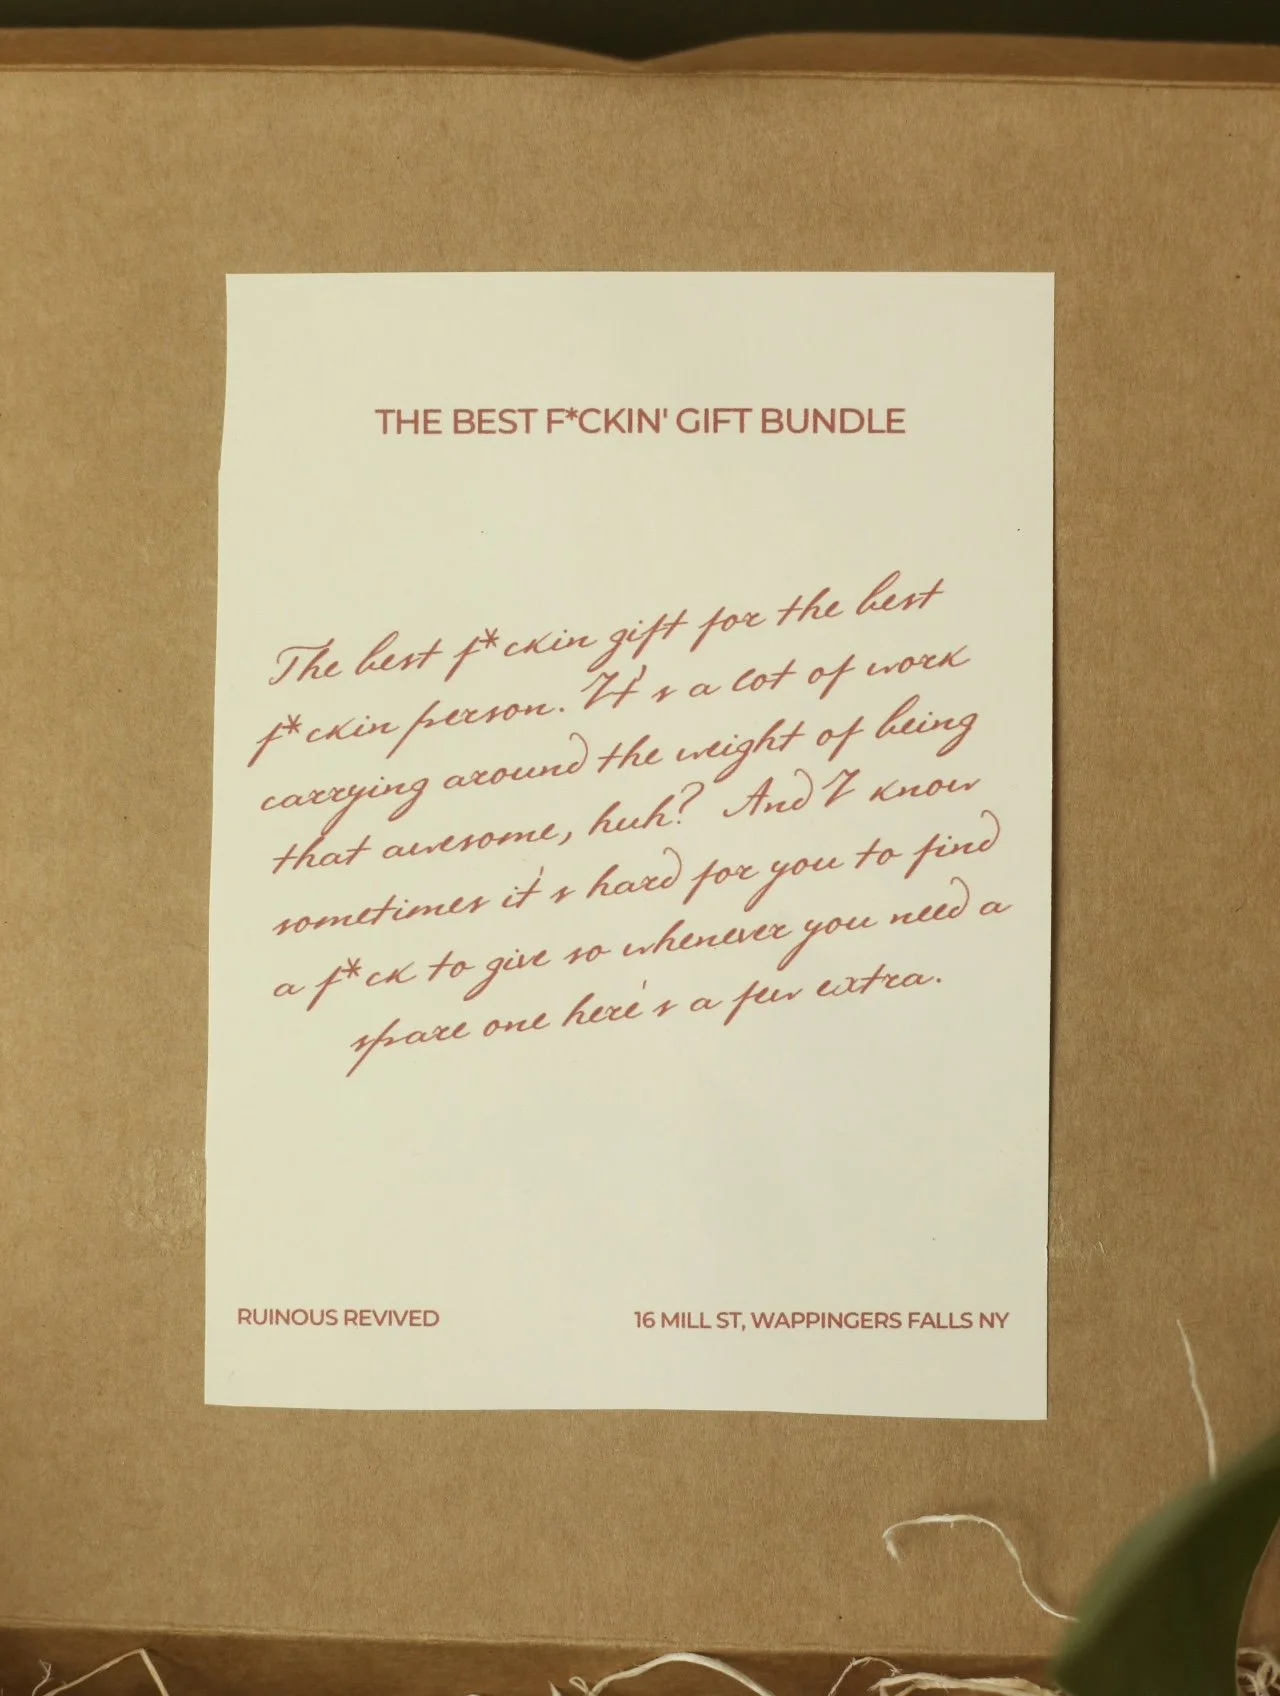 THE BEST F*CKIN' GIFT BUNDLE
The best f*ckin gift for the best
f*ckin person. It's a lot of work
carrying around the weight of being
that awesome, huh? And I know
sometimes it's hard for you to find
a f*ck to give so whenever you need a
spare one here's a few extra.
RUINOUS REVIVED
16 MILL ST, WAPPINGERS FALLS NY